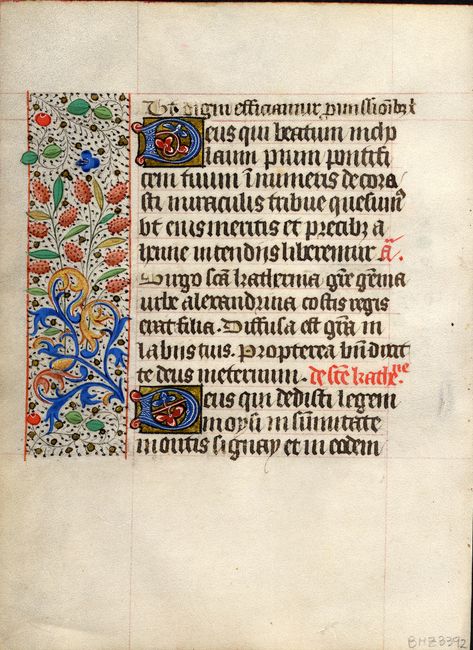 Ut digni efficiamur pmissionibz
Deus qui beatum nicho
laum pium pontifi
cem tuum innumeris decora
sti miraculis tribue quesum9
vt eius meritis et precibz a
iehenne incendiis liberemur a
Uirgo scā katherina grē gēma
urbe alexandrina costis regis
erat filia. Diffusa est grā in
labiis tuis. Propterea bn̄dixit
te deus ineternum. de scte kathrine
Deus qui dedisti legem
moysi in sūmitate
montis signay et in eodem
BMZ3392